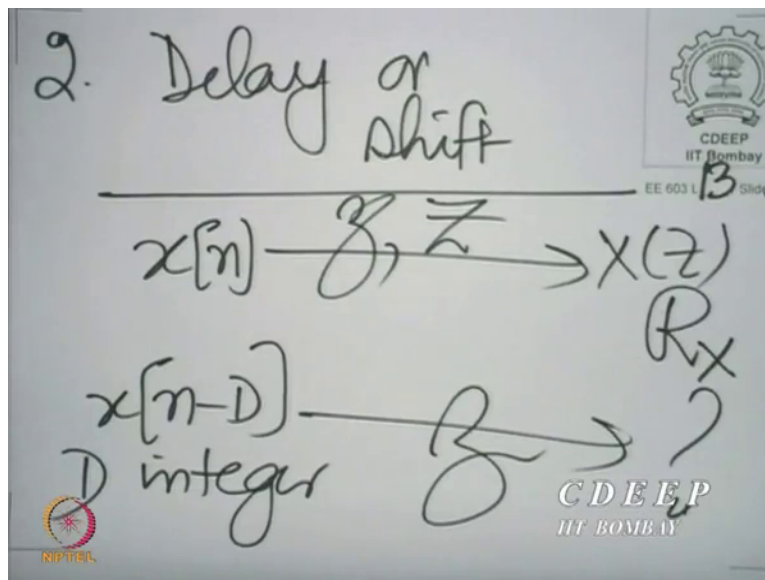 2. Delay or
shift
CDEEP
IIT Bombay
EE 603 L 13 Slide
x[n] z, Z X(z)
Rx
x[n-D] z ?
D integer
CDEEP
IIT BOMBAY
NPTEL